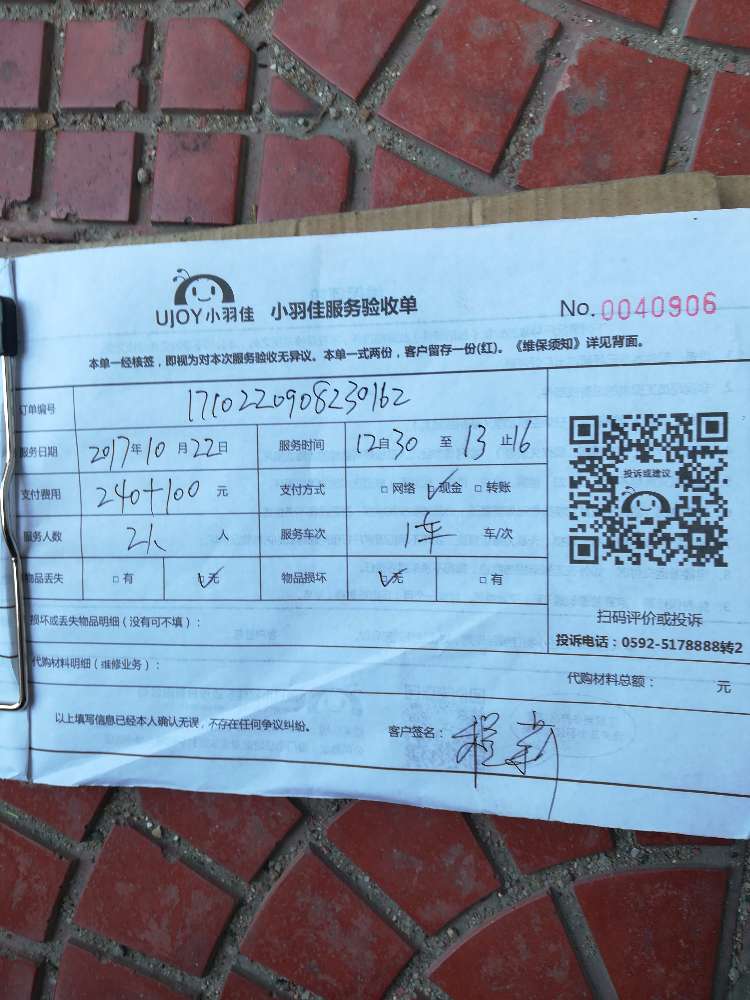 UJOY小羽佳 小羽佳服务验收单 No. 0040906
本单一经核签，即视为对本次服务验收无异议。本单一式两份，客户留存一份(红)。《维保须知》详见背面。
订单编号 1710220908230162
服务日期 2017年10月22日 服务时间 12自30至13止16
支付费用 240+100元 支付方式 □网络 ☑现金 □转账
服务人数 2人 人 服务车次 1车 车/次
物品丢失 □有 ☑无 物品损坏 ☑无 □有
投诉或建议
扫码评价或投诉
投诉电话：0592-5178888转2
损坏或丢失物品明细（没有可不填）：
代购材料明细（维修业务）： 代购材料总额： 元
以上填写信息已经本人确认无误，不存在任何争议纠纷。 客户签名：程莉